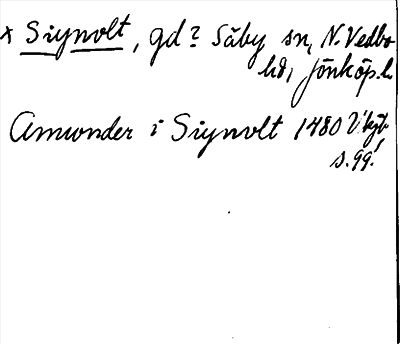 x Siynvolt, gd? Säby sn, N. Vedbo
hd, Jönköp.l.
Amunder i Siynvolt 1480 Vkjb
s. 99.